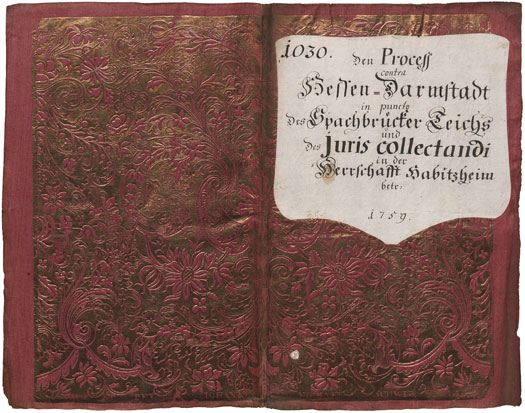 1030. Den Process
contra
Hessen-Darmstadt
in puncto
Des Spachbrücker Teichs
und
des Juris collectandi
in der
Herrschafft Habitzheim
betr.
1759.